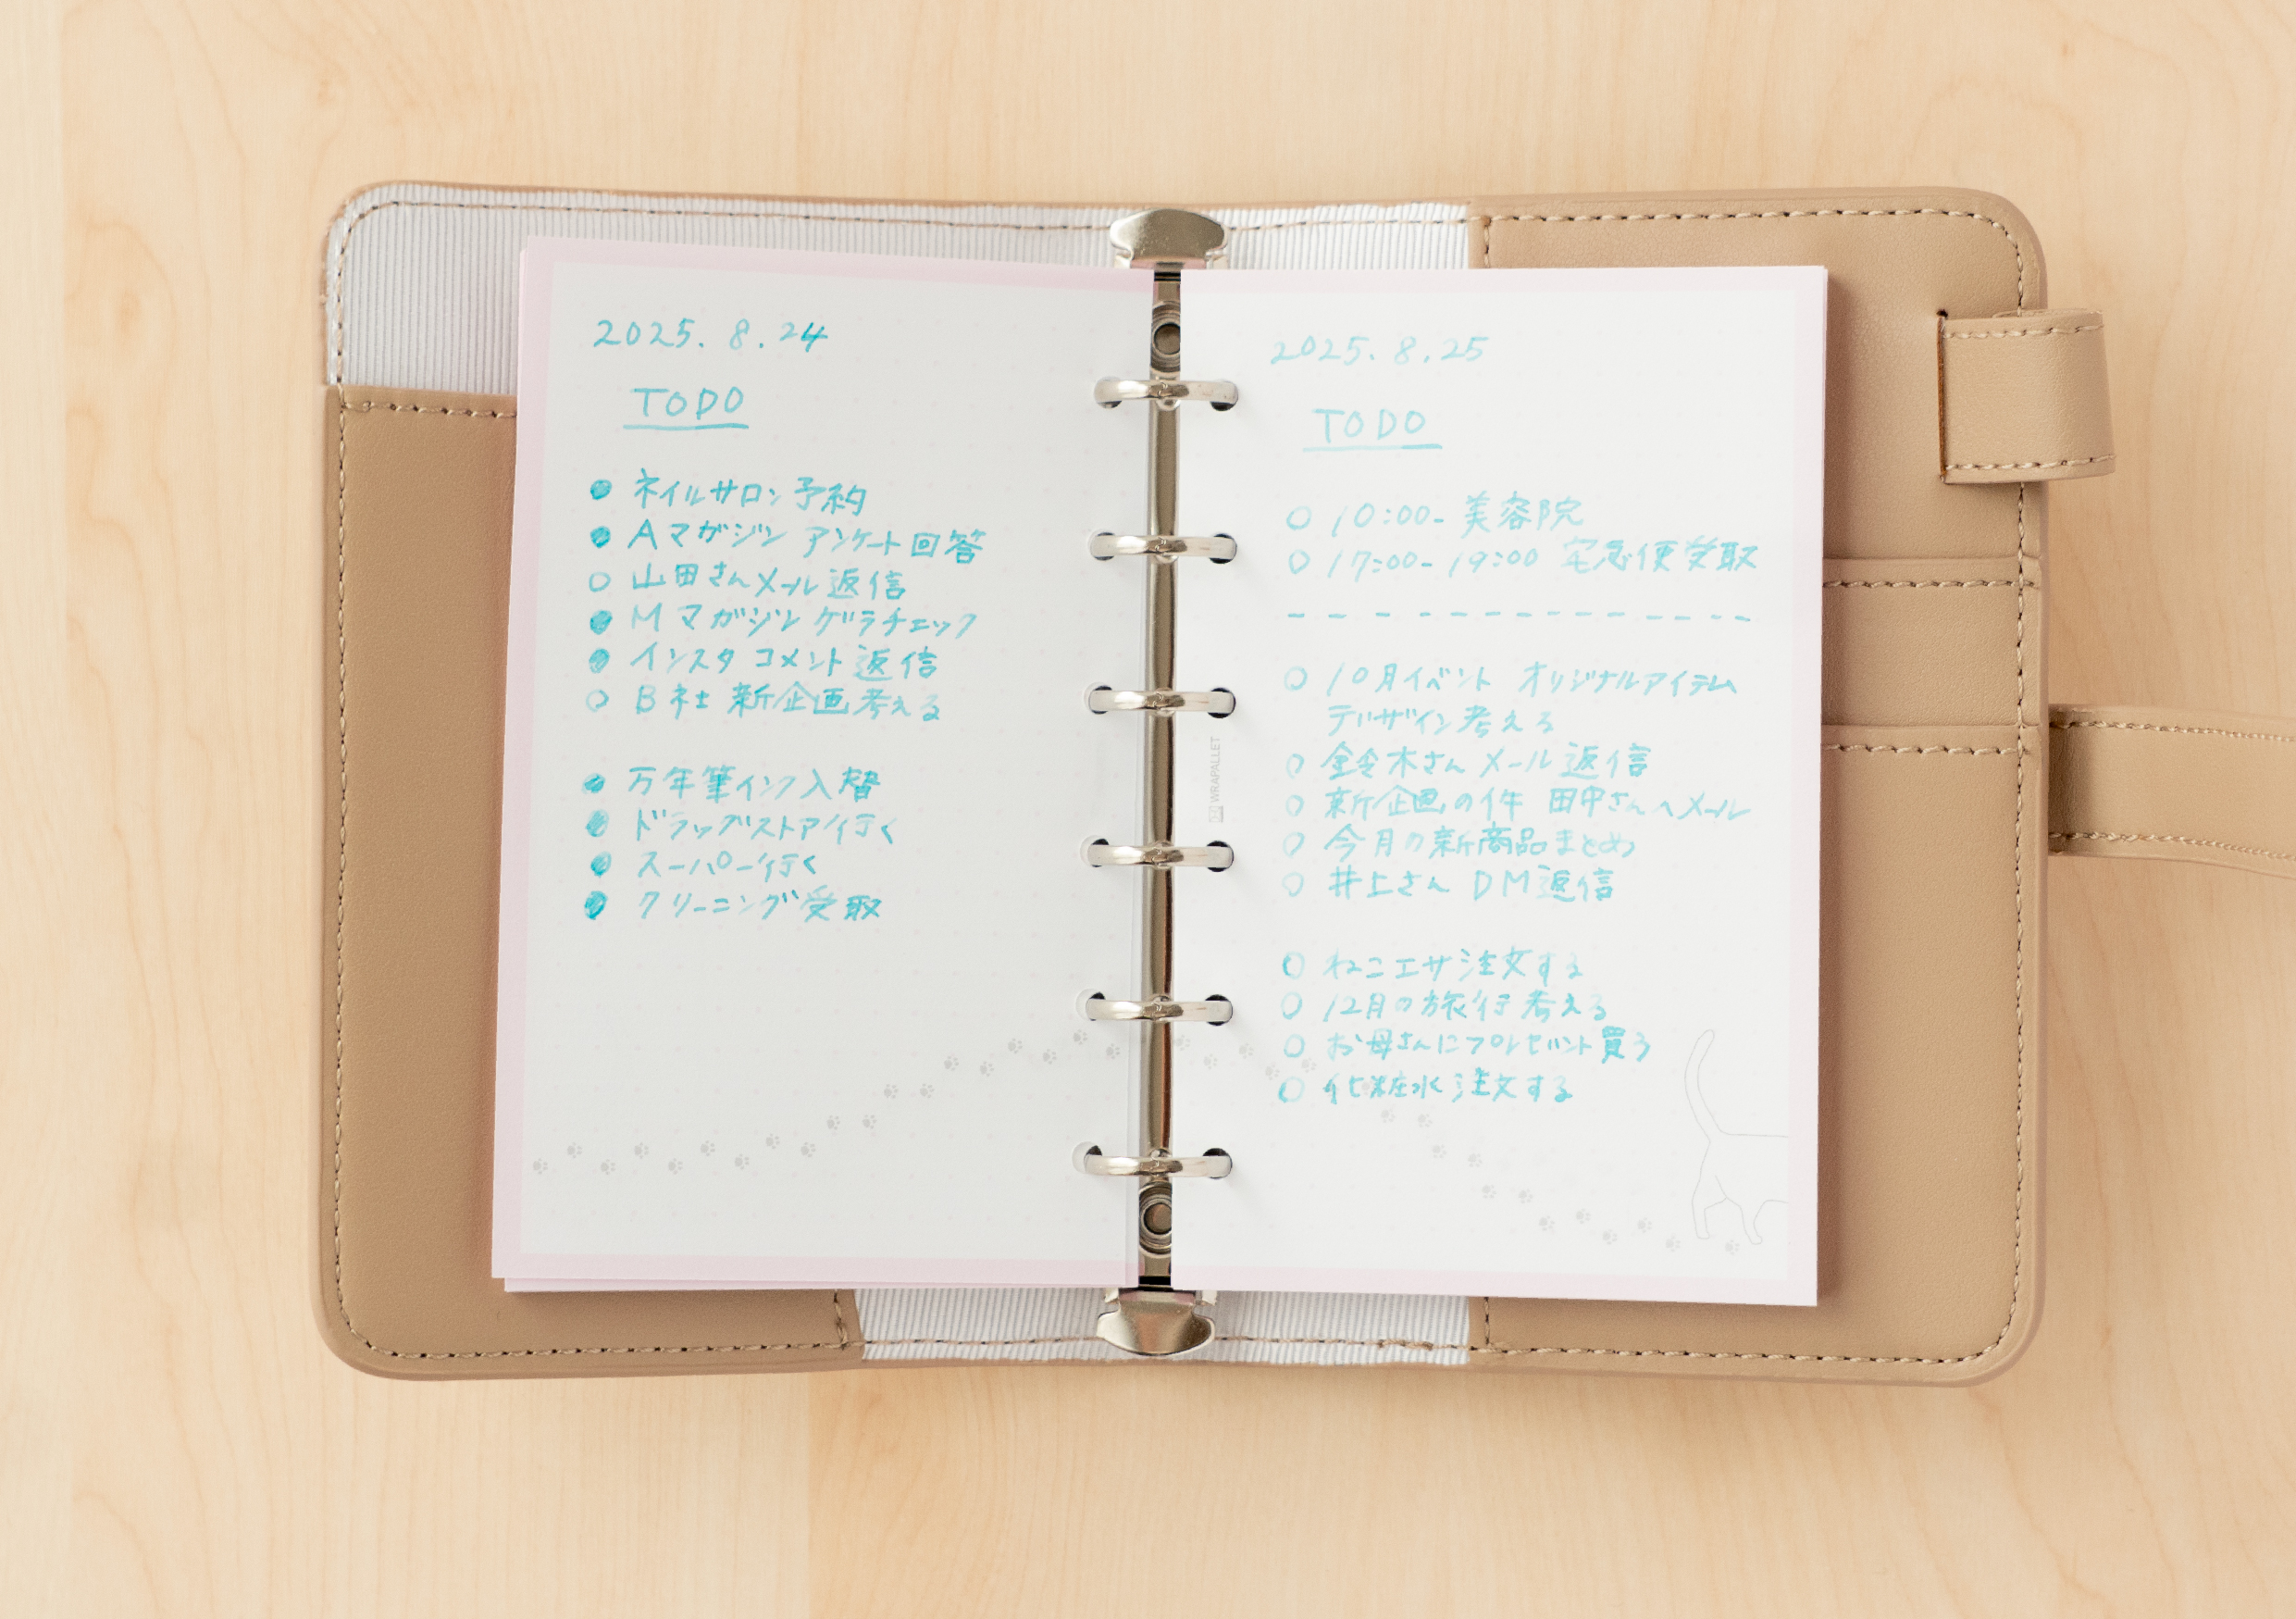 2025. 8. 24
TODO
● ネイルサロン予約
● Aマガジン アンケート回答
○ 山田さんメール返信
● Mマガジン ゲラチェック
● インスタ コメント返信
○ B社 新企画考える
● 万年筆インク入替
● ドラッグストア行く
● スーパー行く
● クリーニング受取
WRAPALLET
2025. 8. 25
TODO
○ 10:00- 美容院
○ 17:00-19:00 宅急便受取
○ 10月イベント オリジナルアイテム
デザイン考える
○ 鈴木さん メール返信
○ 新企画の件 田中さんへメール
○ 今月の新商品まとめ
○ 井上さん DM返信
○ ねこエサ注文する
○ 12月の旅行考える
○ お母さんにプレゼント買う
○ 化粧水注文する